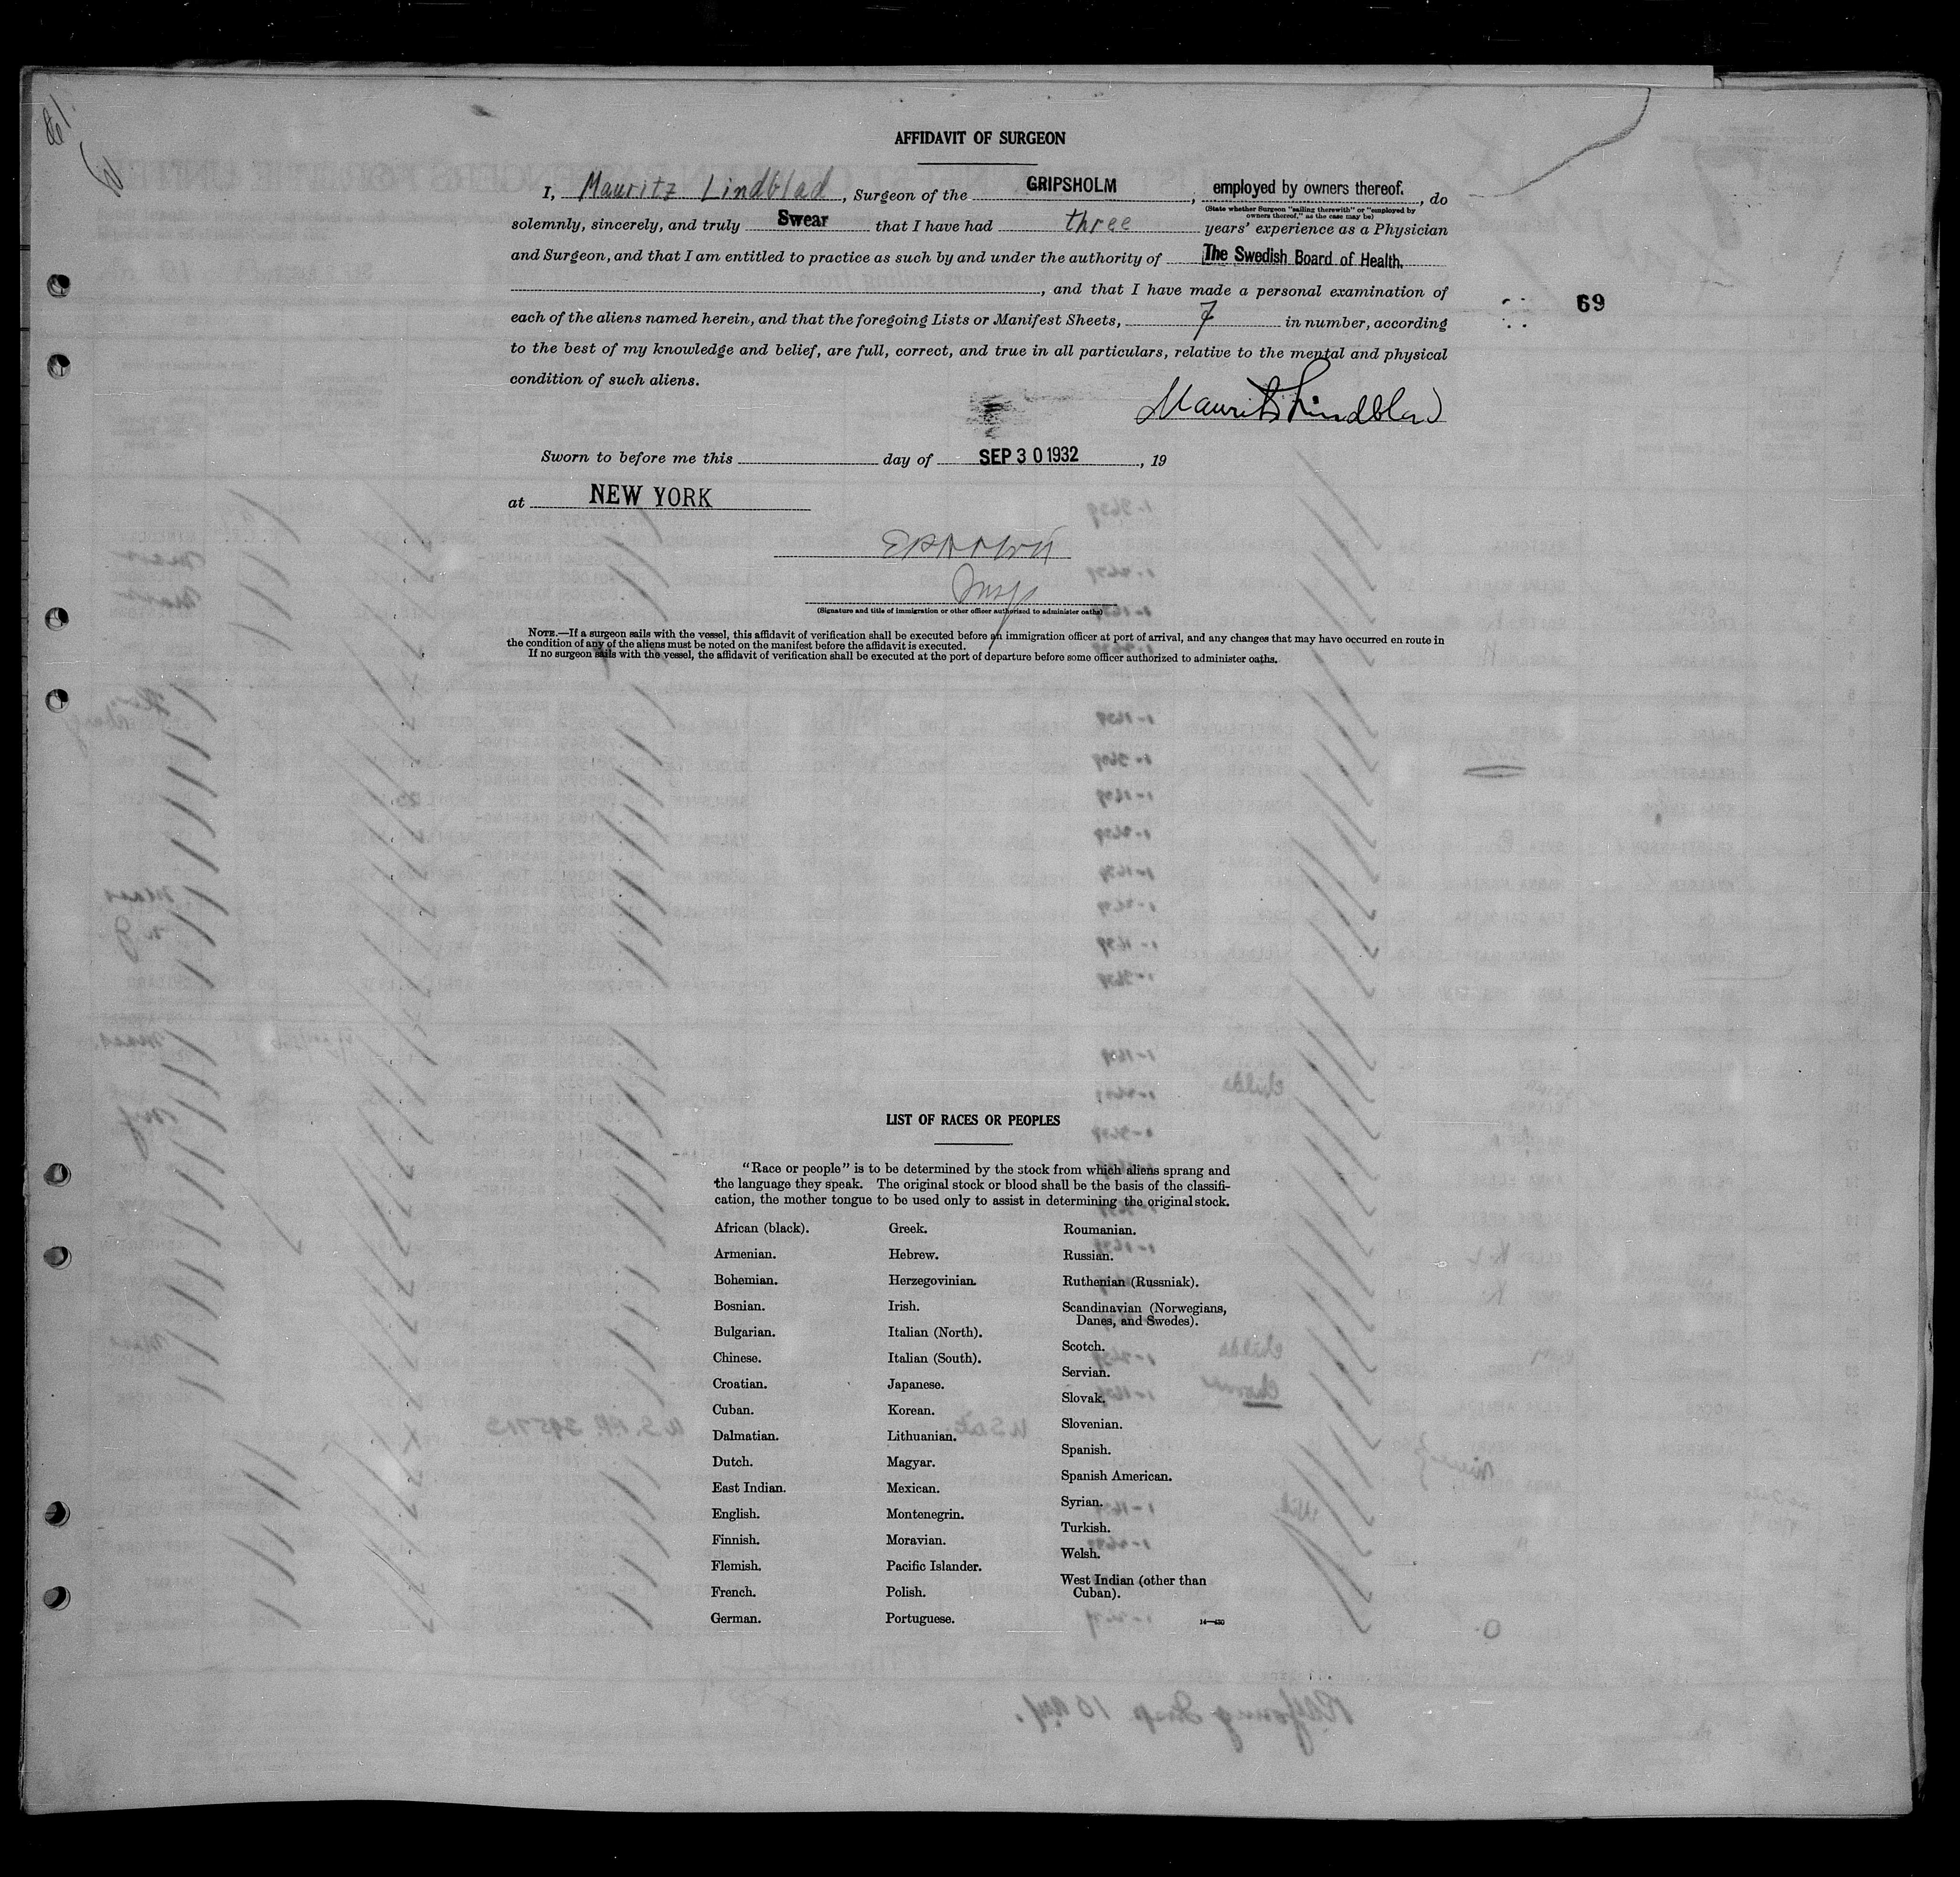 AFFIDAVIT OF SURGEON
I, Mauritz Lindblad, Surgeon of the GRIPSHOLM, employed by owners thereof., do
(State whether Surgeon "sailing therewith" or "employed by
owners thereof," as the case may be)
solemnly, sincerely, and truly Swear that I have had three years' experience as a Physician
and Surgeon, and that I am entitled to practice as such by and under the authority of The Swedish Board of Health.
, and that I have made a personal examination of
69
each of the aliens named herein, and that the foregoing Lists or Manifest Sheets, 7 in number, according
to the best of my knowledge and belief, are full, correct, and true in all particulars, relative to the mental and physical
condition of such aliens.
Maurits Lindblad
Sworn to before me this day of SEP 30 1932, 19
at NEW YORK
Insp
(Signature and title of immigration or other officer authorized to administer oaths)
NOTE.—If a surgeon sails with the vessel, this affidavit of verification shall be executed before an immigration officer at port of arrival, and any changes that may have occurred en route in
the condition of any of the aliens must be noted on the manifest before the affidavit is executed.
If no surgeon sails with the vessel, the affidavit of verification shall be executed at the port of departure before some officer authorized to administer oaths.
LIST OF RACES OR PEOPLES
"Race or people" is to be determined by the stock from which aliens sprang and
the language they speak. The original stock or blood shall be the basis of the classifi-
cation, the mother tongue to be used only to assist in determining the original stock.
African (black).
Armenian.
Bohemian.
Bosnian.
Bulgarian.
Chinese.
Croatian.
Cuban.
Dalmatian.
Dutch.
East Indian.
English.
Finnish.
Flemish.
French.
German.
Greek.
Hebrew.
Herzegovinian.
Irish.
Italian (North).
Italian (South).
Japanese.
Korean.
Lithuanian.
Magyar.
Mexican.
Montenegrin.
Moravian.
Pacific Islander.
Polish.
Portuguese.
Roumanian.
Russian.
Ruthenian (Russniak).
Scandinavian (Norwegians,
Danes, and Swedes).
Scotch.
Servian.
Slovak.
Slovenian.
Spanish.
Spanish American.
Syrian.
Turkish.
Welsh.
West Indian (other than
Cuban).
14—430